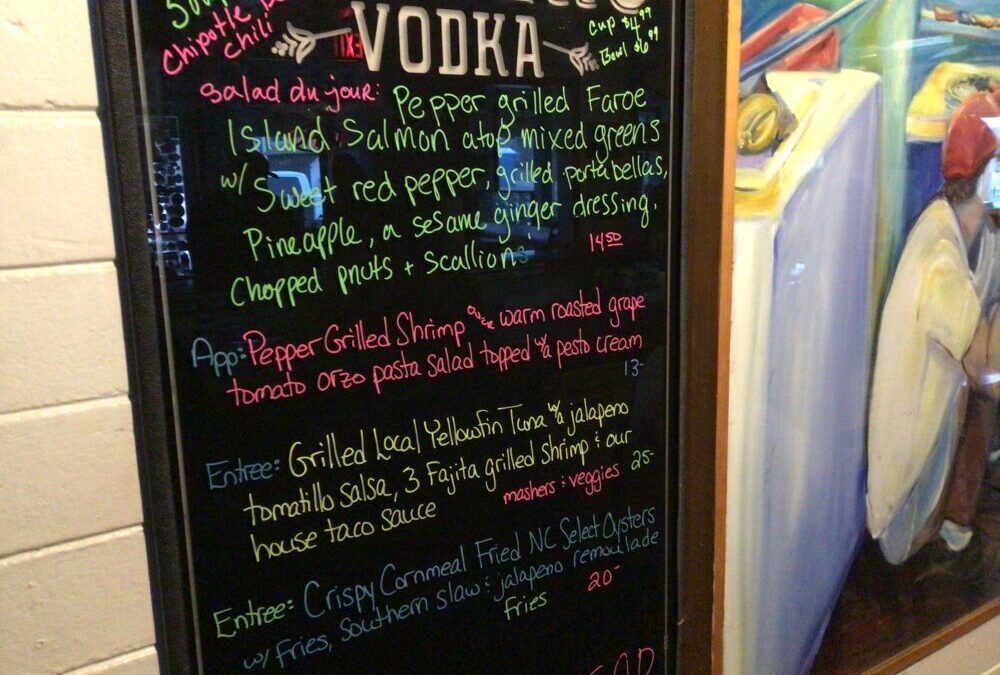 Chipotle
chili
VODKA
Cup $4.99
Bowl $6.99
Salad du jour: Pepper grilled Faroe
Island Salmon atop mixed greens
w/ Sweet red pepper, grilled portabellas,
Pineapple, a sesame ginger dressing.
Chopped pnuts + scallions
14.50
App: Pepper Grilled Shrimp over warm roasted grape
tomato orzo pasta salad topped w/a pesto cream
13-
Entree: Grilled Local Yellowfin Tuna w/a jalapeno
tomatillo salsa, 3 Fajita grilled shrimp & our
house taco sauce
mashers & veggies 25-
Entree: Crispy Cornmeal Fried NC Select Oysters
w/ Fries, Southern slaw & jalapeno remoulade
fries
20-